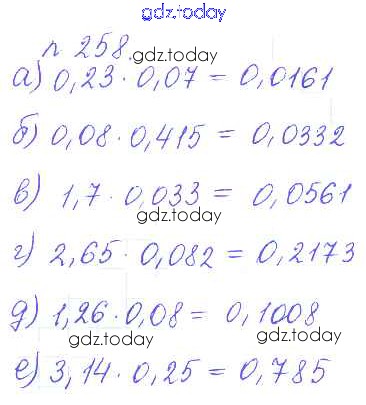 gdz.today
n 258.
gdz.today
а) 0,23 · 0,07 = 0,0161
б) 0,08 · 0,415 = 0,0332
gdz.today
в) 1,7 · 0,033 = 0,0561
gdz.today
г) 2,65 · 0,082 = 0,2173
gdz.today
д) 1,26 · 0,08 = 0,1008
gdz.today
gdz.today
е) 3,14 · 0,25 = 0,785